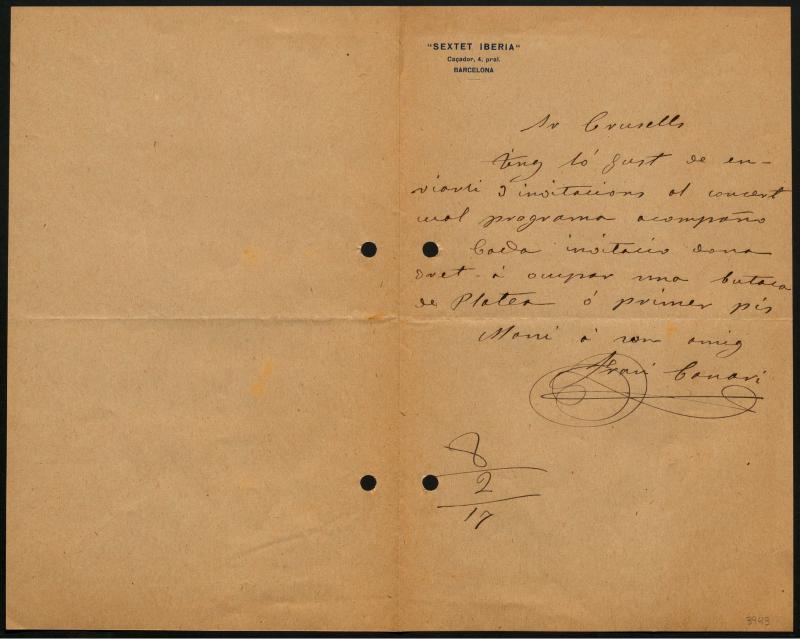 "SEXTET IBERIA"
Caçador, 4, pral.
BARCELONA
Sr Crusells
Ting ló gust de en-
viarli 3 invitacions al concert
cual programa acompaño
Cada invitacio dona
dret á ocupar una butaca
de Platea ó primer pis
Mani á son amig
Canari
8
2
17
3993